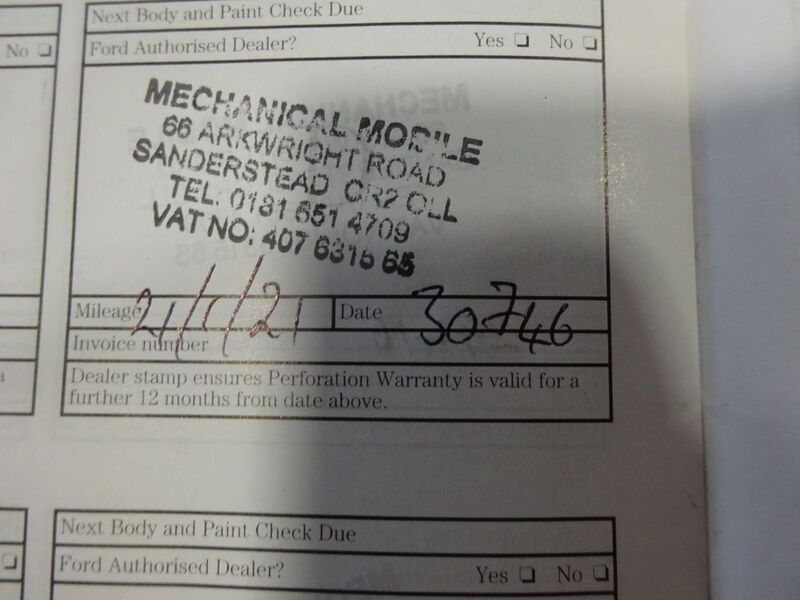 Next Body and Paint Check Due
No ❑ Ford Authorised Dealer? Yes ❑ No ❑
MECHANICAL MOBILE
66 ARKWRIGHT ROAD
SANDERSTEAD CR2 0LL
TEL: 0181 651 4709
VAT NO: 407 6315 65
Mileage 21/1/21 Date 30746
Invoice number
Dealer stamp ensures Perforation Warranty is valid for a
further 12 months from date above.
Next Body and Paint Check Due
Ford Authorised Dealer? Yes ❑ No ❑